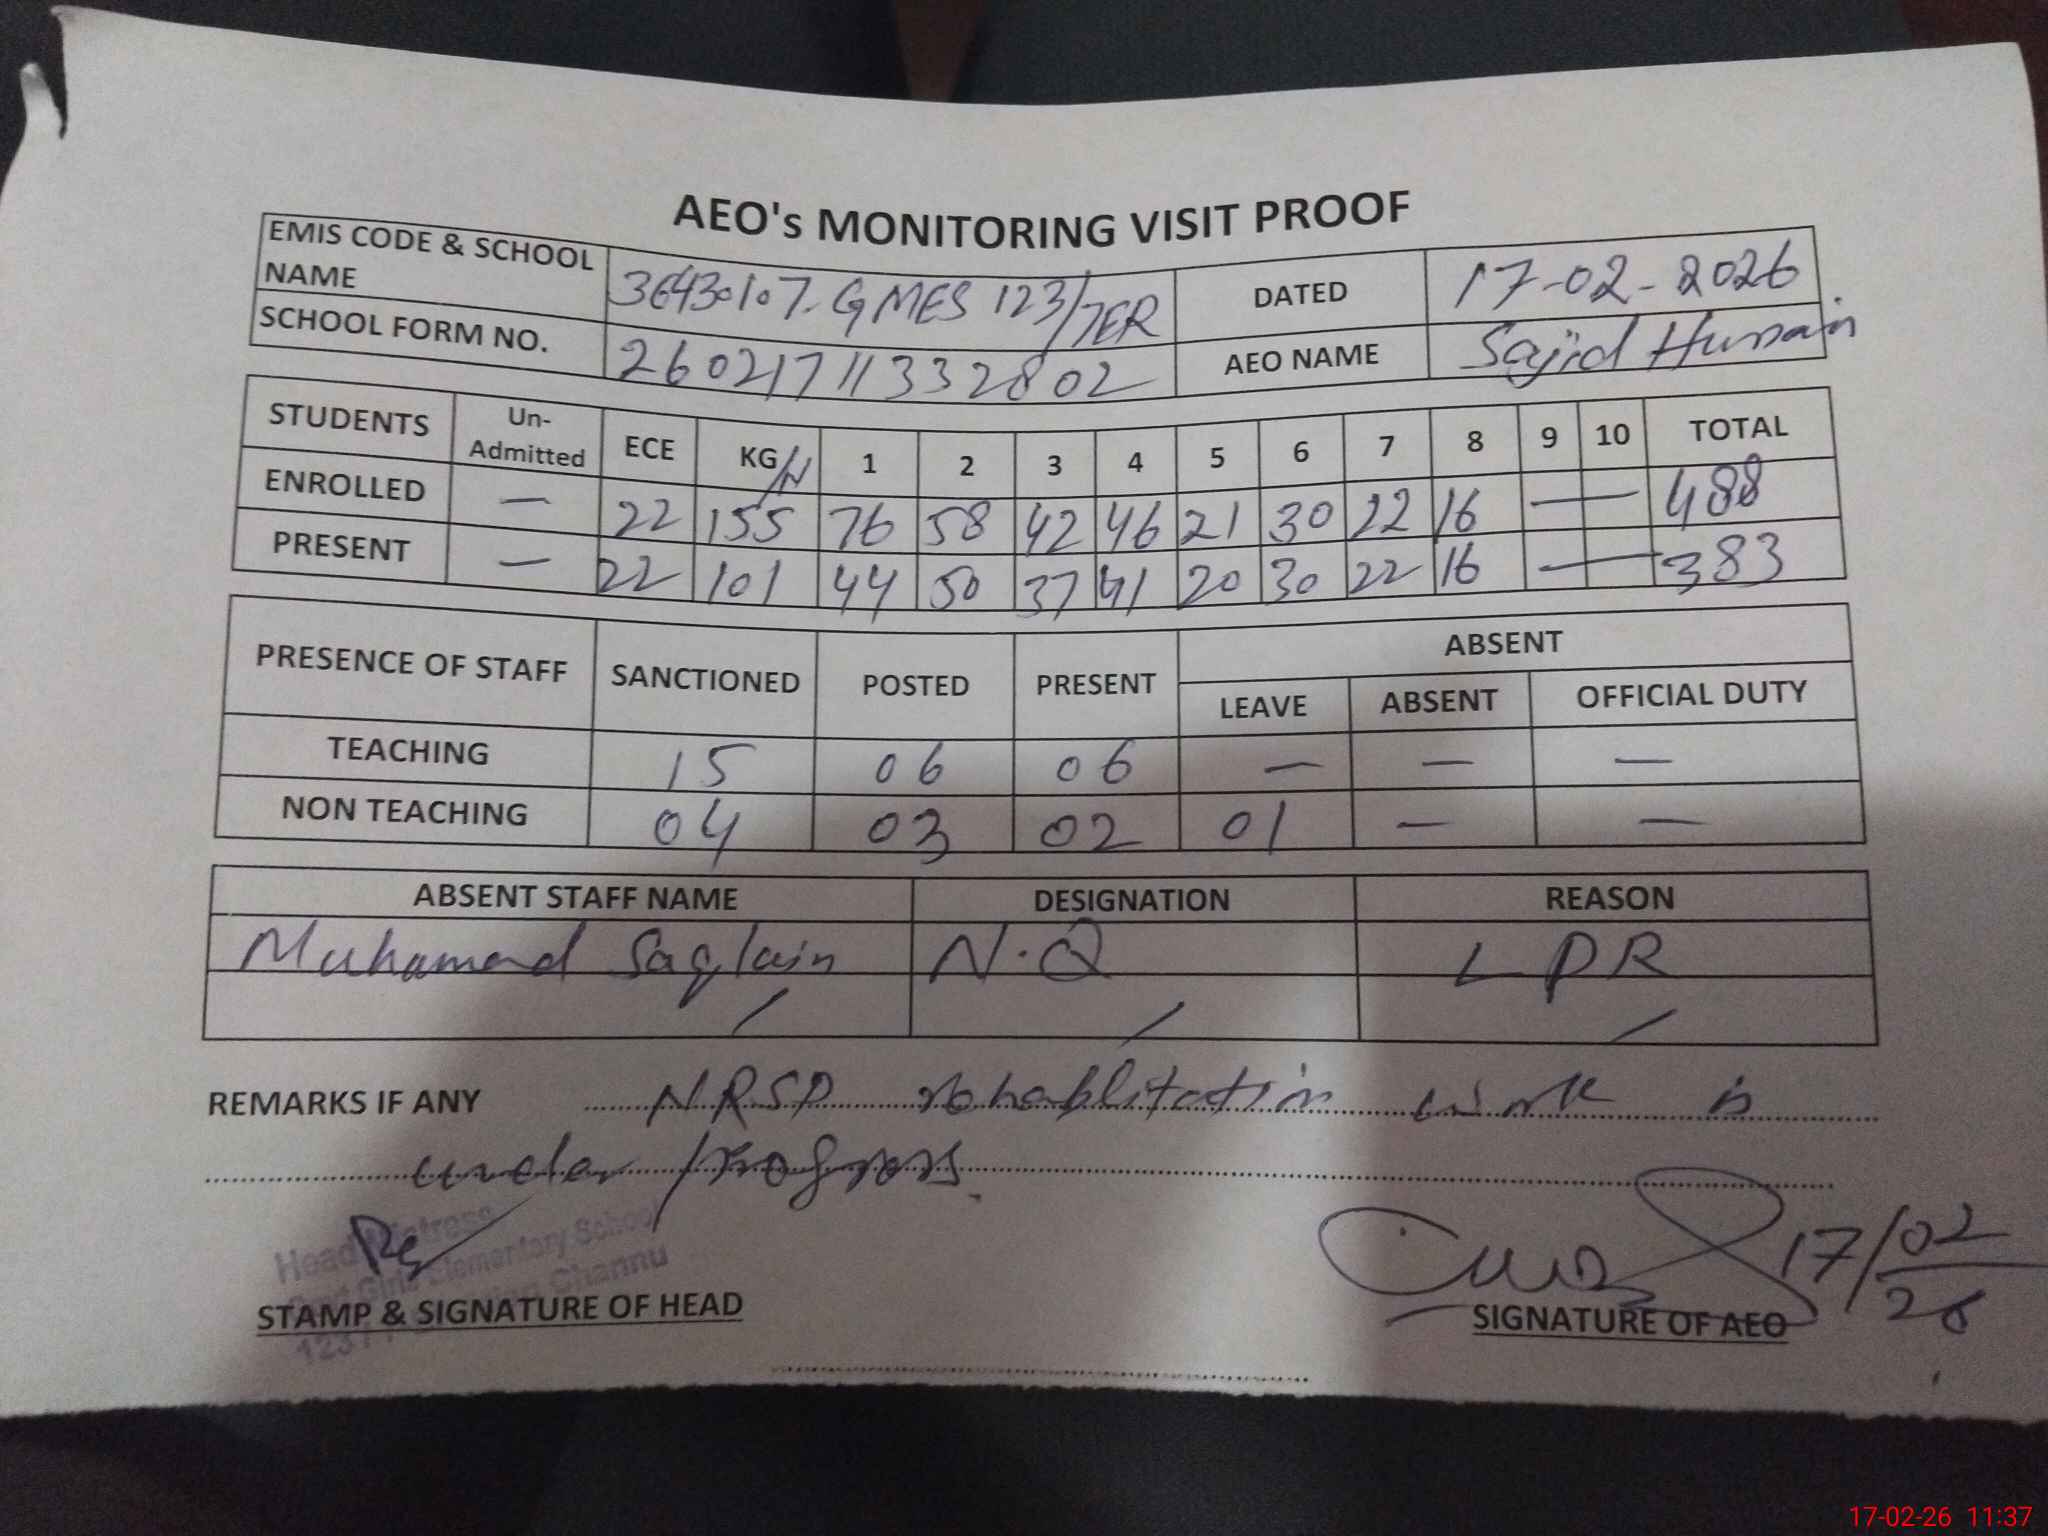 AEO's MONITORING VISIT PROOF
EMIS CODE & SCHOOL NAME 36430107. GMES 123/7ER DATED 17-02-2026
SCHOOL FORM NO. 26021711332802 AEO NAME Sajid Hussain
STUDENTS Un-Admitted ECE KG/N 1 2 3 4 5 6 7 8 9 10 TOTAL
ENROLLED — 22 155 76 58 42 46 21 30 22 16 — 488
PRESENT — 22 101 44 50 37 41 20 30 22 16 — 383
PRESENCE OF STAFF SANCTIONED POSTED PRESENT ABSENT
LEAVE ABSENT OFFICIAL DUTY
TEACHING 15 06 06 — — —
NON TEACHING 04 03 02 01 — —
ABSENT STAFF NAME DESIGNATION REASON
Muhamad Saqlain N.Q LPR
/ / /
REMARKS IF ANY NRSP rehablitation work is
under progress.
Elementary School
Channu
17/02
26
STAMP & SIGNATURE OF HEAD SIGNATURE OF AEO
17-02-26 11:37